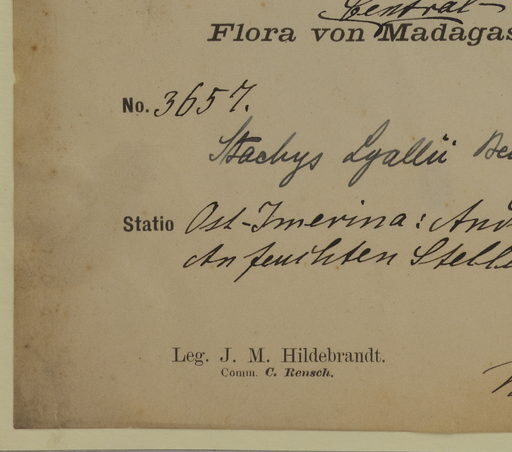 Central-
Flora von Madagas
No. 3657.
Stachys Lyallii Be
Statio Ost-Imerina: And
An feuchten Stelle
Leg. J. M. Hildebrandt.
Comm. C. Rensch.